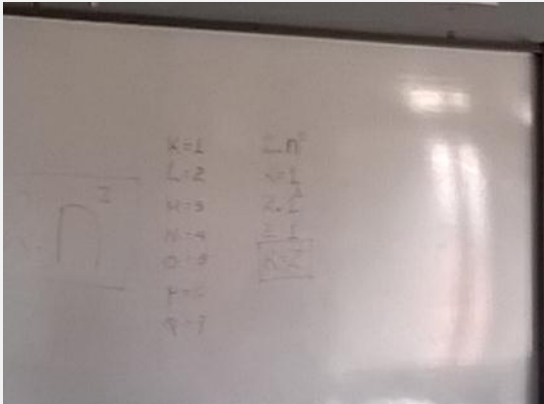 n²
K=1
L=2
M=3
N=4
O=5
P=6
Q=7
2.n²
n=1
2.1²
2.1
K=2